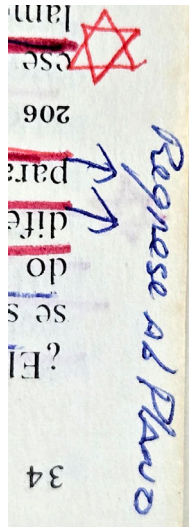 34
¿El
se s
do
dife
para
206
ese
lam
Regrese al Plano